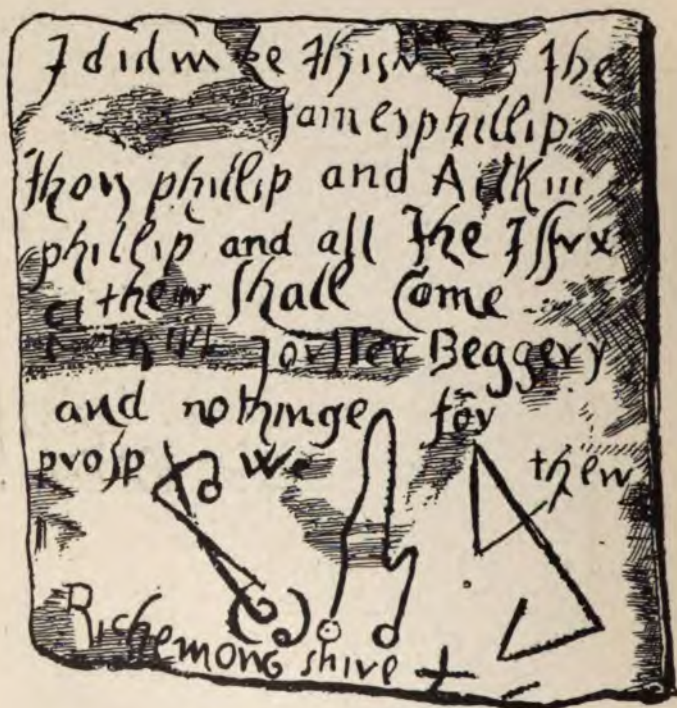 I did make this the
James phillip
Jhon phillip and
phillip and all the Issve
them shall Come
Beggery
and nothinge Joy
prosp them
Richemond shire